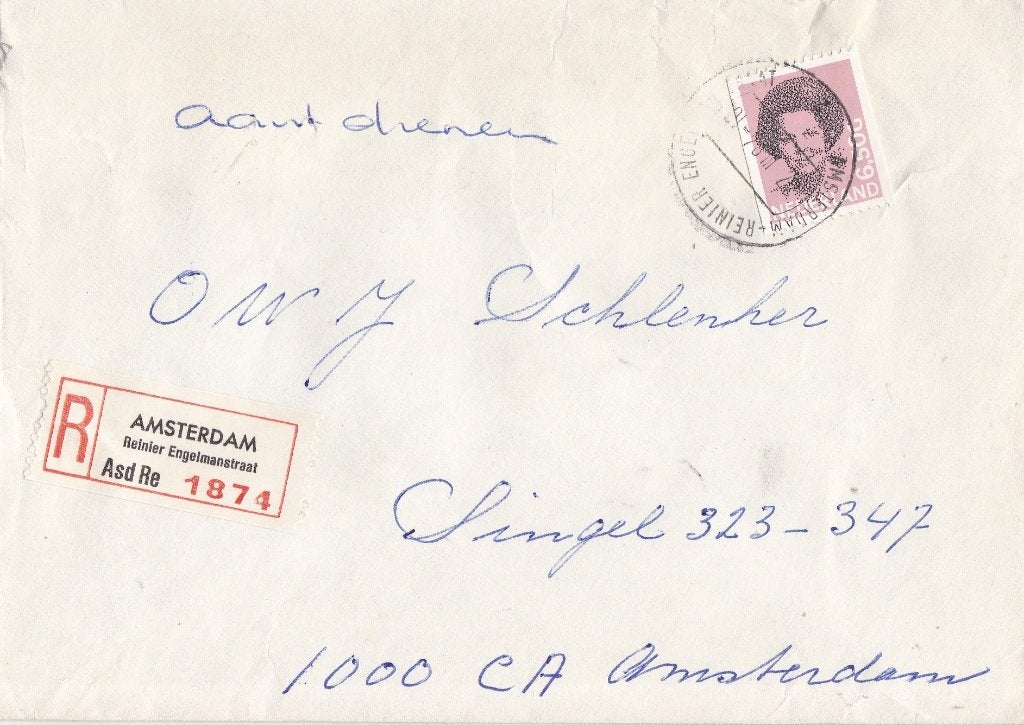 aant
6,50
NEDERLAND
AMSTERDAM - REINIER ENGE
O W J Schlenher
R
AMSTERDAM
Reinier Engelmanstraat
Asd Re 1874
Singel 323-347
1000 CA Amsterdam